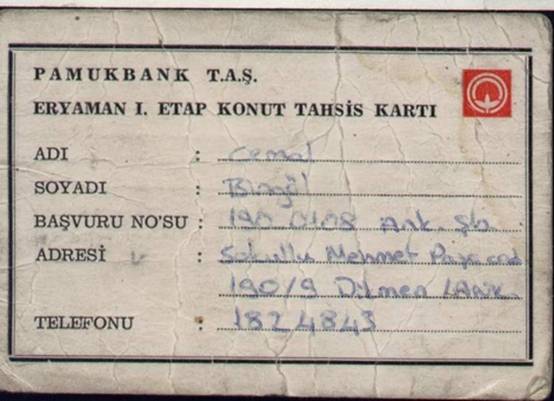 PAMUKBANK T.A.Ş.
ERYAMAN I. ETAP KONUT TAHSİS KARTI
ADI : Cemal
SOYADI : Bingöl
BAŞVURU NO'SU : Ank. Şb.
ADRESİ : Sokullu Mehmet Paşa cad
190/9 Dikmen / ANK.
TELEFONU : 1824843